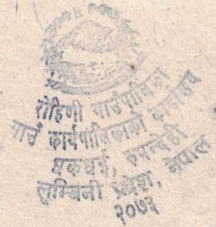 रोहिणी गाउँपालिका
गाउँ कार्यपालिकाको कार्यालय
धकधई, रुपन्देही
लुम्बिनी प्रदेश, नेपाल
२०७३